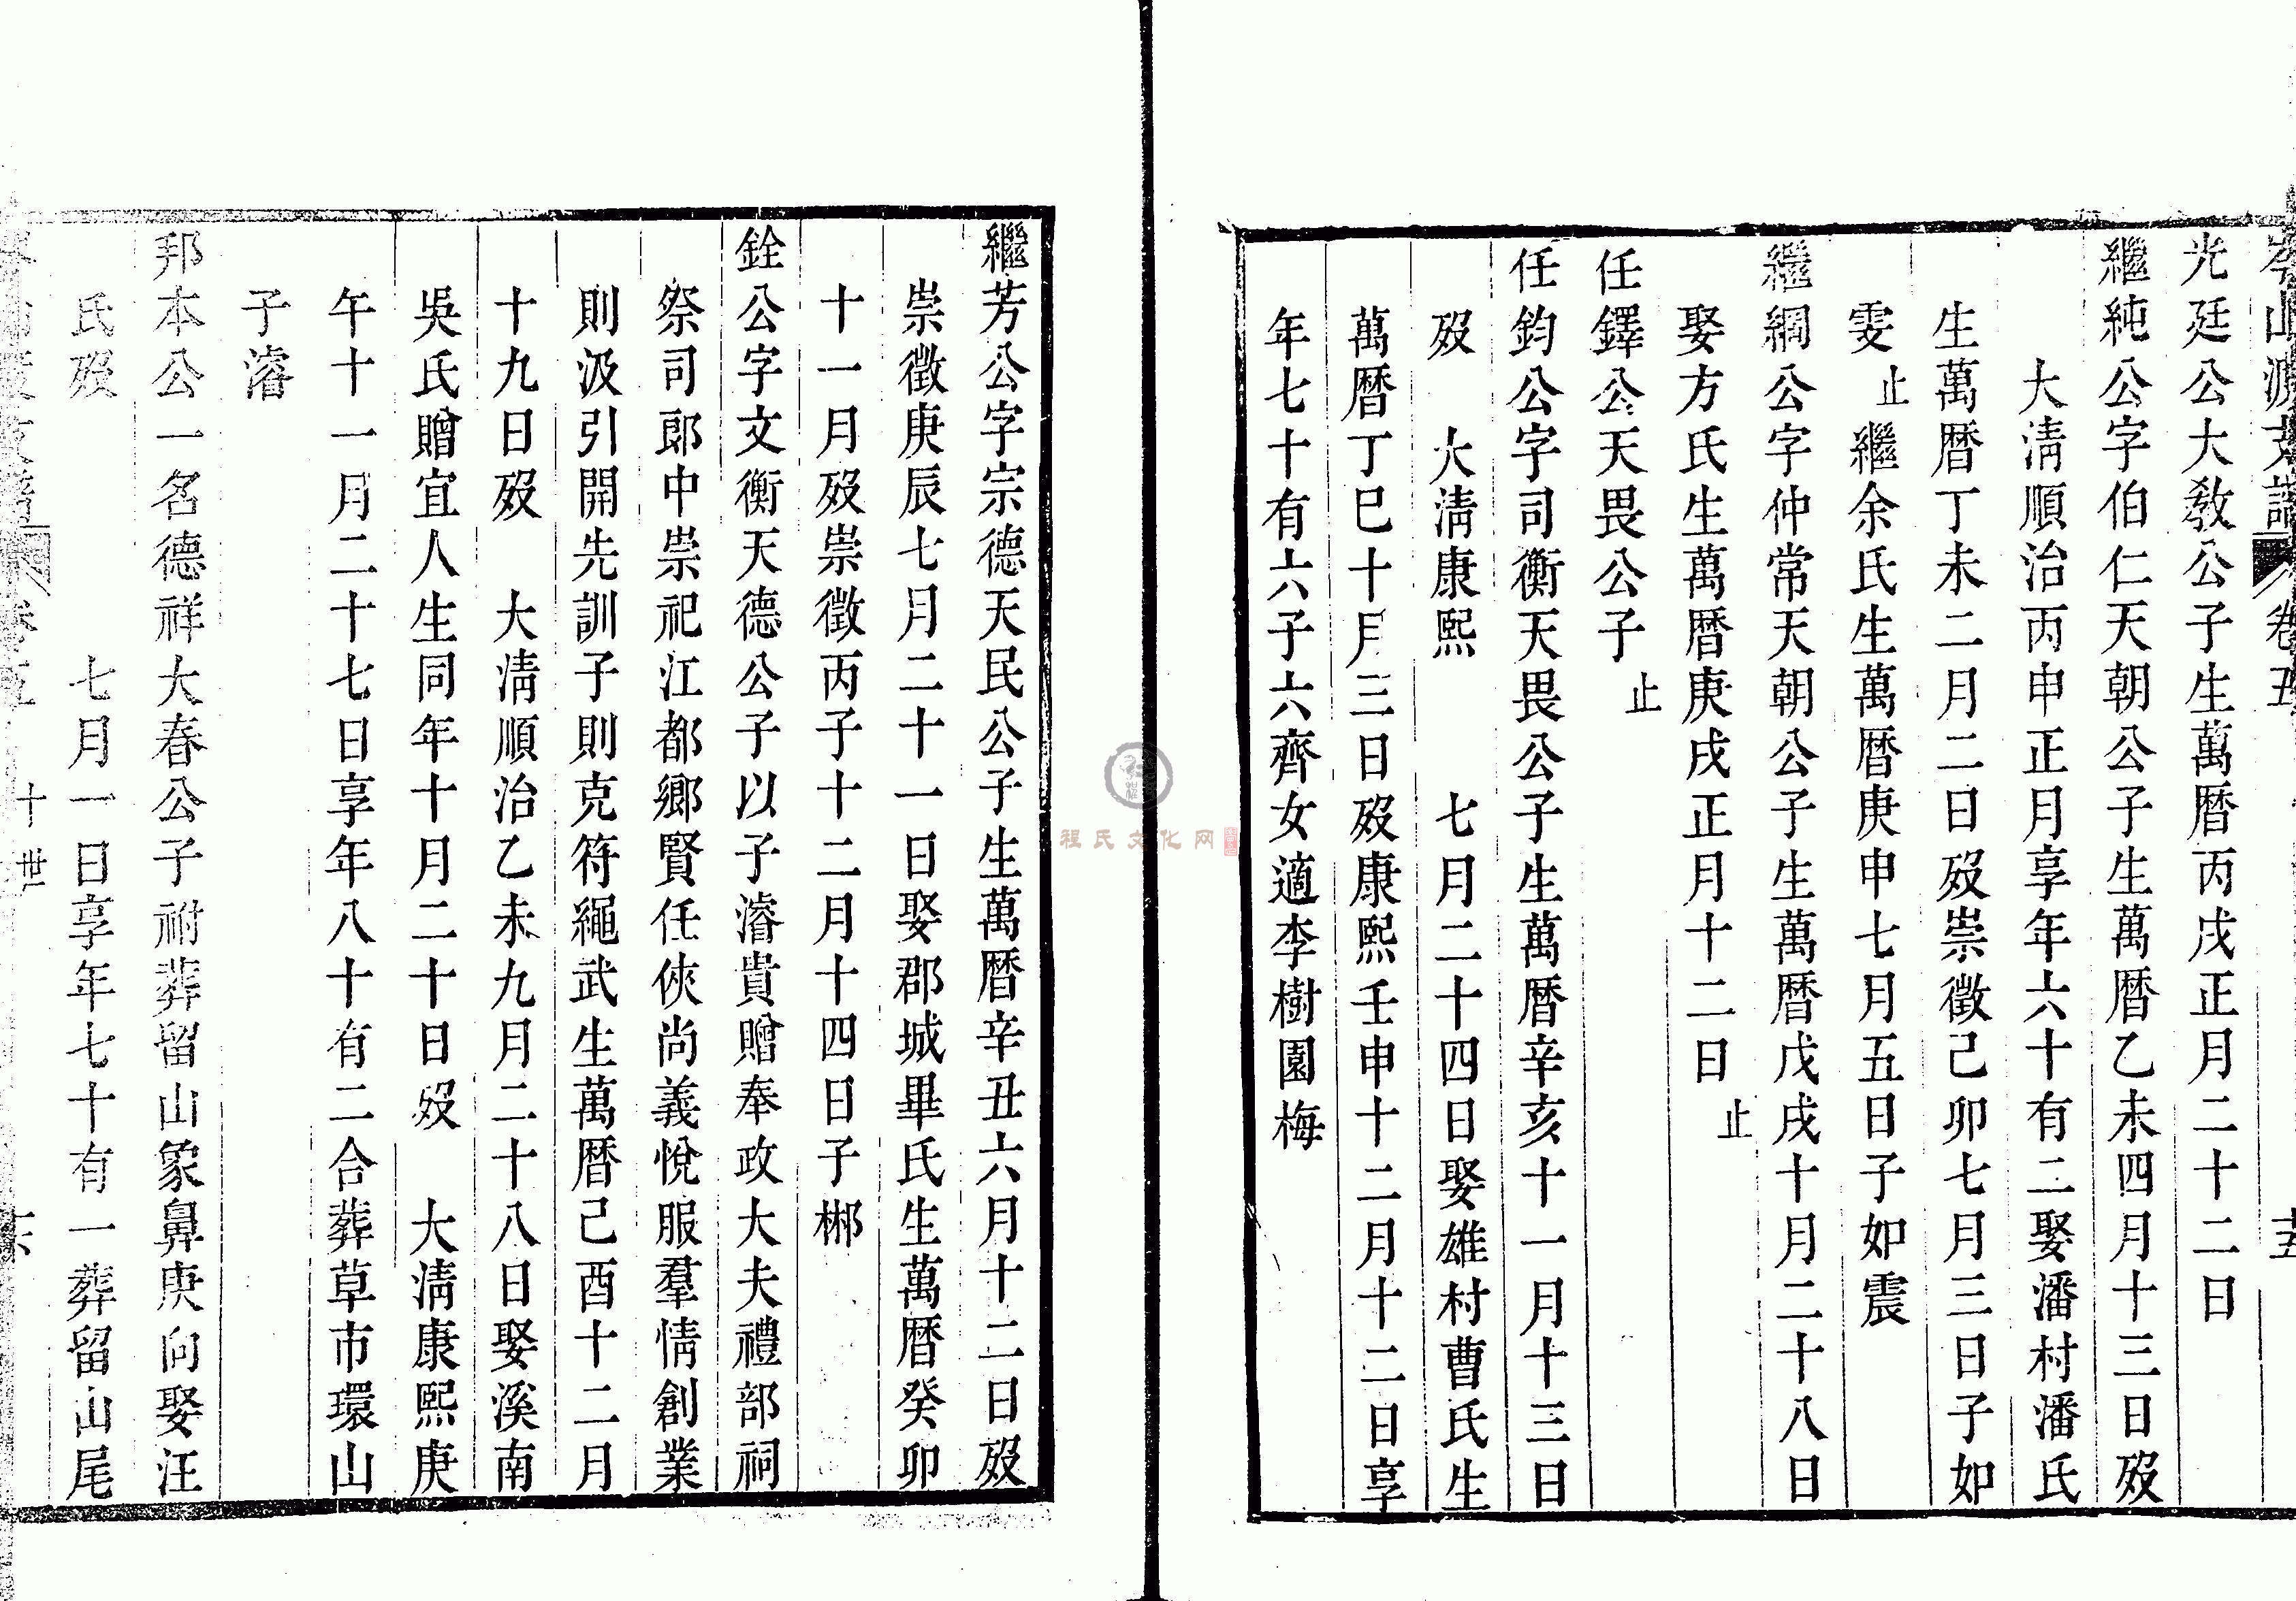 岑山渡支譜 卷五 十五
光廷公大敎公子生萬曆丙戌正月二十二日
繼純公字伯仁天朝公子生萬曆乙未四月十三日歿
大淸順治丙申正月享年六十有二娶潘村潘氏
生萬曆丁未二月二日歿崇徵己卯七月三日子如
雯止繼余氏生萬曆庚申七月五日子如震
繼綱公字仲常天朝公子生萬曆戊戌十月二十八日
娶方氏生萬曆庚戌正月十二日止
任鐸公天畏公子止
任鈞公字司衡天畏公子生萬曆辛亥十一月十三日
歿 大淸康熙 七月二十四日娶雄村曹氏生
萬曆丁巳十月三日歿康熙壬申十二月十二日享
年七十有六子六齊女適李樹園梅
繼芳公字宗德天民公子生萬曆辛丑六月十二日歿
崇徵庚辰七月二十一日娶郡城畢氏生萬曆癸卯
十一月歿崇徵丙子十二月十四日子郴
銓公字文衡天德公子以子濬貴贈奉政大夫禮部祠
祭司郎中崇祀江都鄉賢任俠尚義悅服羣情創業
則汲引開先訓子則克符繩武生萬曆己酉十二月
十九日歿 大淸順治乙未九月二十八日娶溪南
吳氏贈宜人生同年十月二十日歿 大淸康熙庚
午十一月二十七日享年八十有二合葬草市環山
子濬
邦本公一名德祥大春公子祔葬留山象鼻庚向娶汪
氏歿 七月一日享年七十有一葬留山尾
支譜 卷五 十世
程氏文化网